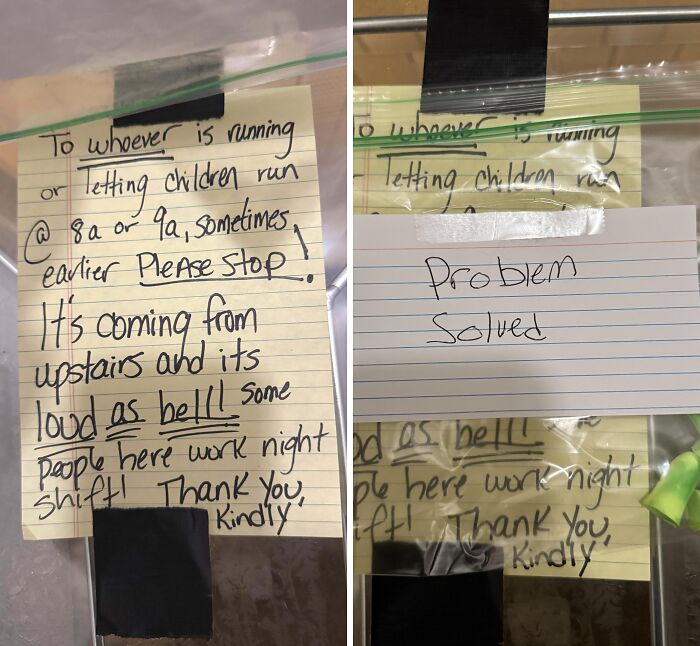 To whoever is running
or letting children run
@ 8a or 9a, sometimes
earlier Please Stop!
It's coming from
upstairs and its
loud as hell! some
people here work night
shift! Thank You,
Kindly
To whoever is running
letting children run
Problem
Solved
ud as hell!
ple here work night
ift! Thank You,
Kindly